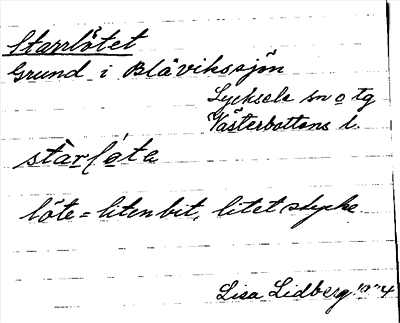 Starrlötet
Grund i Blåvikssjön
Lycksele sn o tg
Västerbottens l.
stàrlǿte
löte = liten bit, litet stycke
Lisa Lidberg